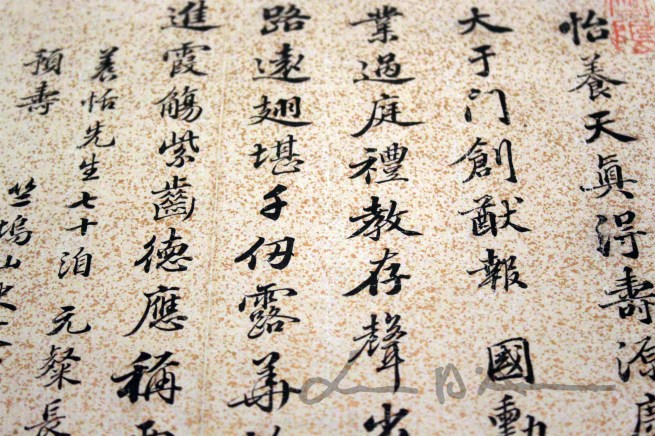 怡養天真得壽源
大于门創猷報 國勳
業過庭禮教存聲
路遠翅堪千仞露華
進霞觴紫齒德應稱
養恬先生七十洎 元粲長
預壽
竺塢山